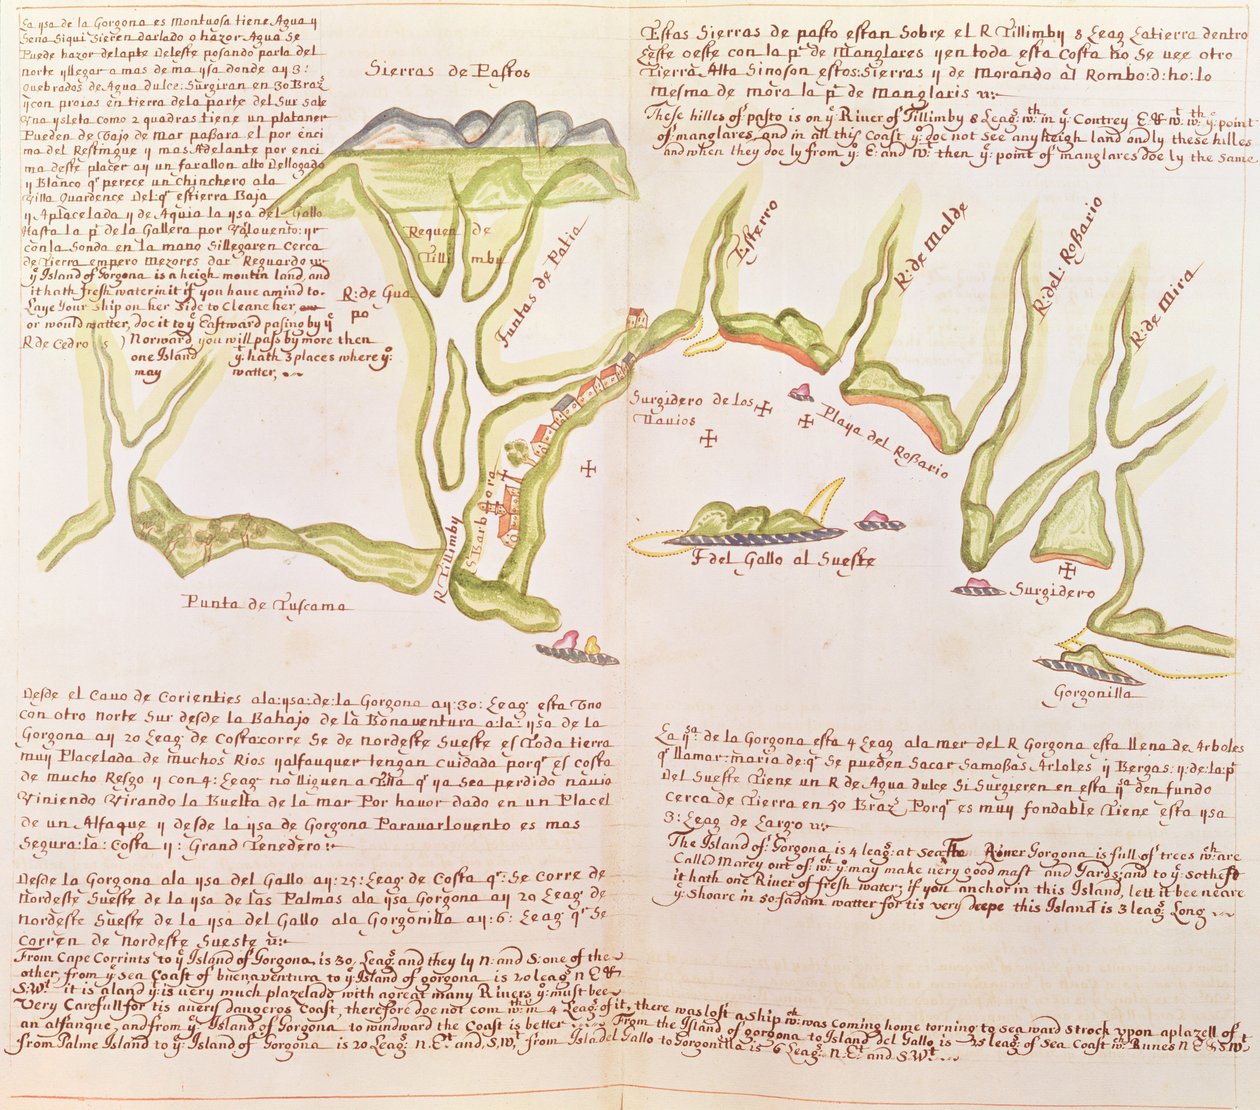 La ysa de la Gorgona es Montuosa tiene Agua y
Seña Siqui Sieren darlado o hazor Agua Se
Puede hazor delapte Deleste posando parla del
norte yllegar a mas de ma ysa donde ay 3:
Quebrados de Agua dulce: Surgiran en 30 Braz
y con proias en tierra dela parte del Sur sale
Vna ysleta como 2 quadras tiene un plataner
Pueden de Vajo de Mar pasara el por enci
ma del Restingue y mas Adelante por enci
ma deste placer ay un farallon alto Dellogado
y Blanco qe perece un Chinchero ala
Villa Quardence Delqe estierra Baja
y Aplacelada y de Aquia la ysa del Gallo
Hasta la pta de la Gallera por Valouento: yr
con la Sonda en la mano Sillegaren Cerca
de Tierra empero Mezores dar Reguardo
ye Island of Gorgona is a heigh mountin land, and
it hath fresh water in it if you have a mind to
Laye Your ship on her Side to Cleanc her,
or would watter, doe it to ye Eastward pasing by ye
Norward you will pass by more then
one Island yt hath 3 places where yo:
may watter,
R de Cedros
Sierras de Pastos
Requen de
Tillimby
R: de Gua
po
Puntas de Patia
Estas Sierras de pasto estan Sobre el R Tillimby 8 Leag Latierra dentro
Leste oeste con la pta de Manglares yen toda esta Costa no Se vee otro
Tierra Alta Sinoson estos: Sierras y de Morando al Rombo: d: ho: lo
mesma de mora la pta de Manglaris
These hilles of pasto is on ye River of Tillimby 8 Leags: wth in ye Contrey E & Wt wth ye: point
of manglares, and in all this Coast yo: doe not See any heigh land only these hilles
and when they doe ly from yo: E: and Wt: then ye: point of manglares doe ly the Same
Esterro
R: de Malde
R: del: Rossario
R: de Mira
Surgidero de los
Navios
Playa del Rossario
R Tillimby
S Barbora
Punta de Tuscama
I del Gallo al Sueste
Surgidero
Gorgonilla
Desde el Cavo de Corienties ala: ysa: de: la Gorgona ay: 30: Leag esta Vno
con otro norte Sur desde la Bahajo de la Bonaventura a: la: ysa de la
Gorgona ay 20 Leag de Costa: corre Se de Nordeste Sueste es Toda tierra
muy Placelada de muchos Rios yalfauquer tengan Cuidada porqe es Costa
de mucho Resgo y con 4: Leag no lliguen a Tra qe ya Sea perdido navio
Viniendo Virando la Buelta de la mar Por havor dado en un Placel
de un Alfaque y desde la ysa de Gorgona Paravarlovento es mas
Segura: la: Costa y: Grand Tenedero:
Desde la Gorgona ala ysa del Gallo ay: 25: Leag de Costa qe: Se Corre de
Nordeste Sueste de la ysa de las Palmas ala ysa Gorgona ay 20 Leag de
Nordeste Sueste de la ysa del Gallo ala Gorgonilla ay: 6: Leag qe Se
Corren de Nordeste Sueste
From Cape Corrints to ye Island of Gorgona is 30, Leags and they ly N: and S: one of the
other, from ye Sea Coast of buenaventura to ye: Island of gorgona is 20 leags N E &
S. Wt it is a land yt: is very much plazelado with a great many Rivers yo: must bee
Very Carefull for tis a very dangeros Coast, therefore doe not com wth: in 4 Leags: of it, there was lost a Ship wch: was Coming home torning to Sea ward Strock vpon a plazell of
an alfanque, and from ye Island of Gorgona to windward the Coast is better From the Island of gorgona to Island del Gallo is 25 leags: of Sea Coast wch: Runes N E & S Wt
from Palme Island to ye: Island of Gorgona is 20 Leags: N. Et. and, S, Wt, from Isla del Gallo to Gorgonilla is 6 Leags: N. Et: and S. Wt.
La ysa: de la Gorgona esta 4 Leag ala mer del R Gorgona esta llena de Arboles
qe llamar: maria de: qe Se pueden Sacar Samossas Arloles y Bergas: y: de: la: pte
Del Sueste Tiene un R de Agua dulce Si Surgieren en esta ysa den fundo
Cerca de Tierra en 50 Braz Porqe es muy fondable Tiene esta ysa
3: Leag de Largo
The Island of: Gorgona is 4 leags: at sea The River Gorgona is full of trees wch: are
Called Marey out of: wch yo: may make very good mast and Yards; and to ye: Sothest
it hath one River of fresh water; if you anchor in this Island, lett it bee neare
ye: Shoare in 50 fadam watter for tis very deepe this Island is 3 leags: Long